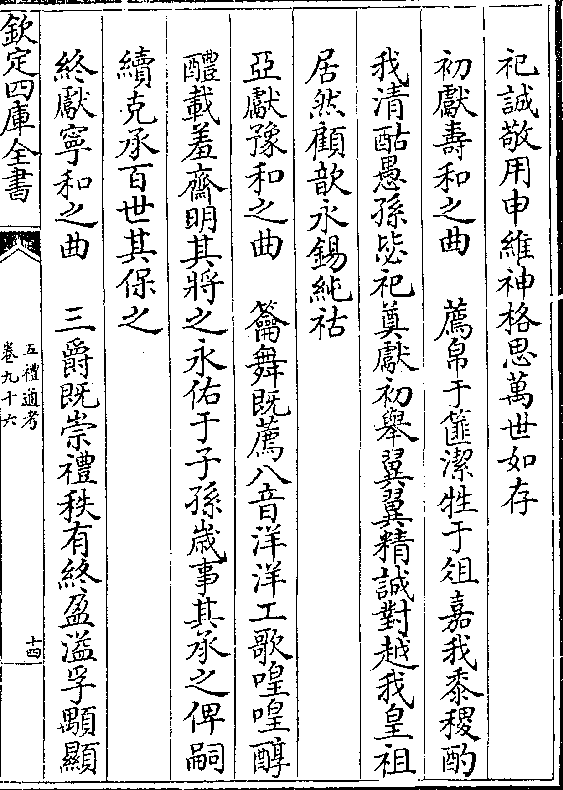 祀誠敬用申維神格思萬世如存
初獻壽和之曲　薦帛于篚潔牲于俎嘉我黍稷酌
我清酤愚孫毖祀奠獻初舉翼翼精誠對越我皇祖
居然顧歆永錫純祜
亞獻豫和之曲　籥舞既薦八音洋洋工歌喤喤醇
醴載羞齋明其將之永佑于子孫歲事其承之俾嗣
續克承百世其保之
終獻寧和之曲　三爵既崇禮秩有終盈溢孚顒顯
欽定四庫全書
五禮通考
卷九十六
十四